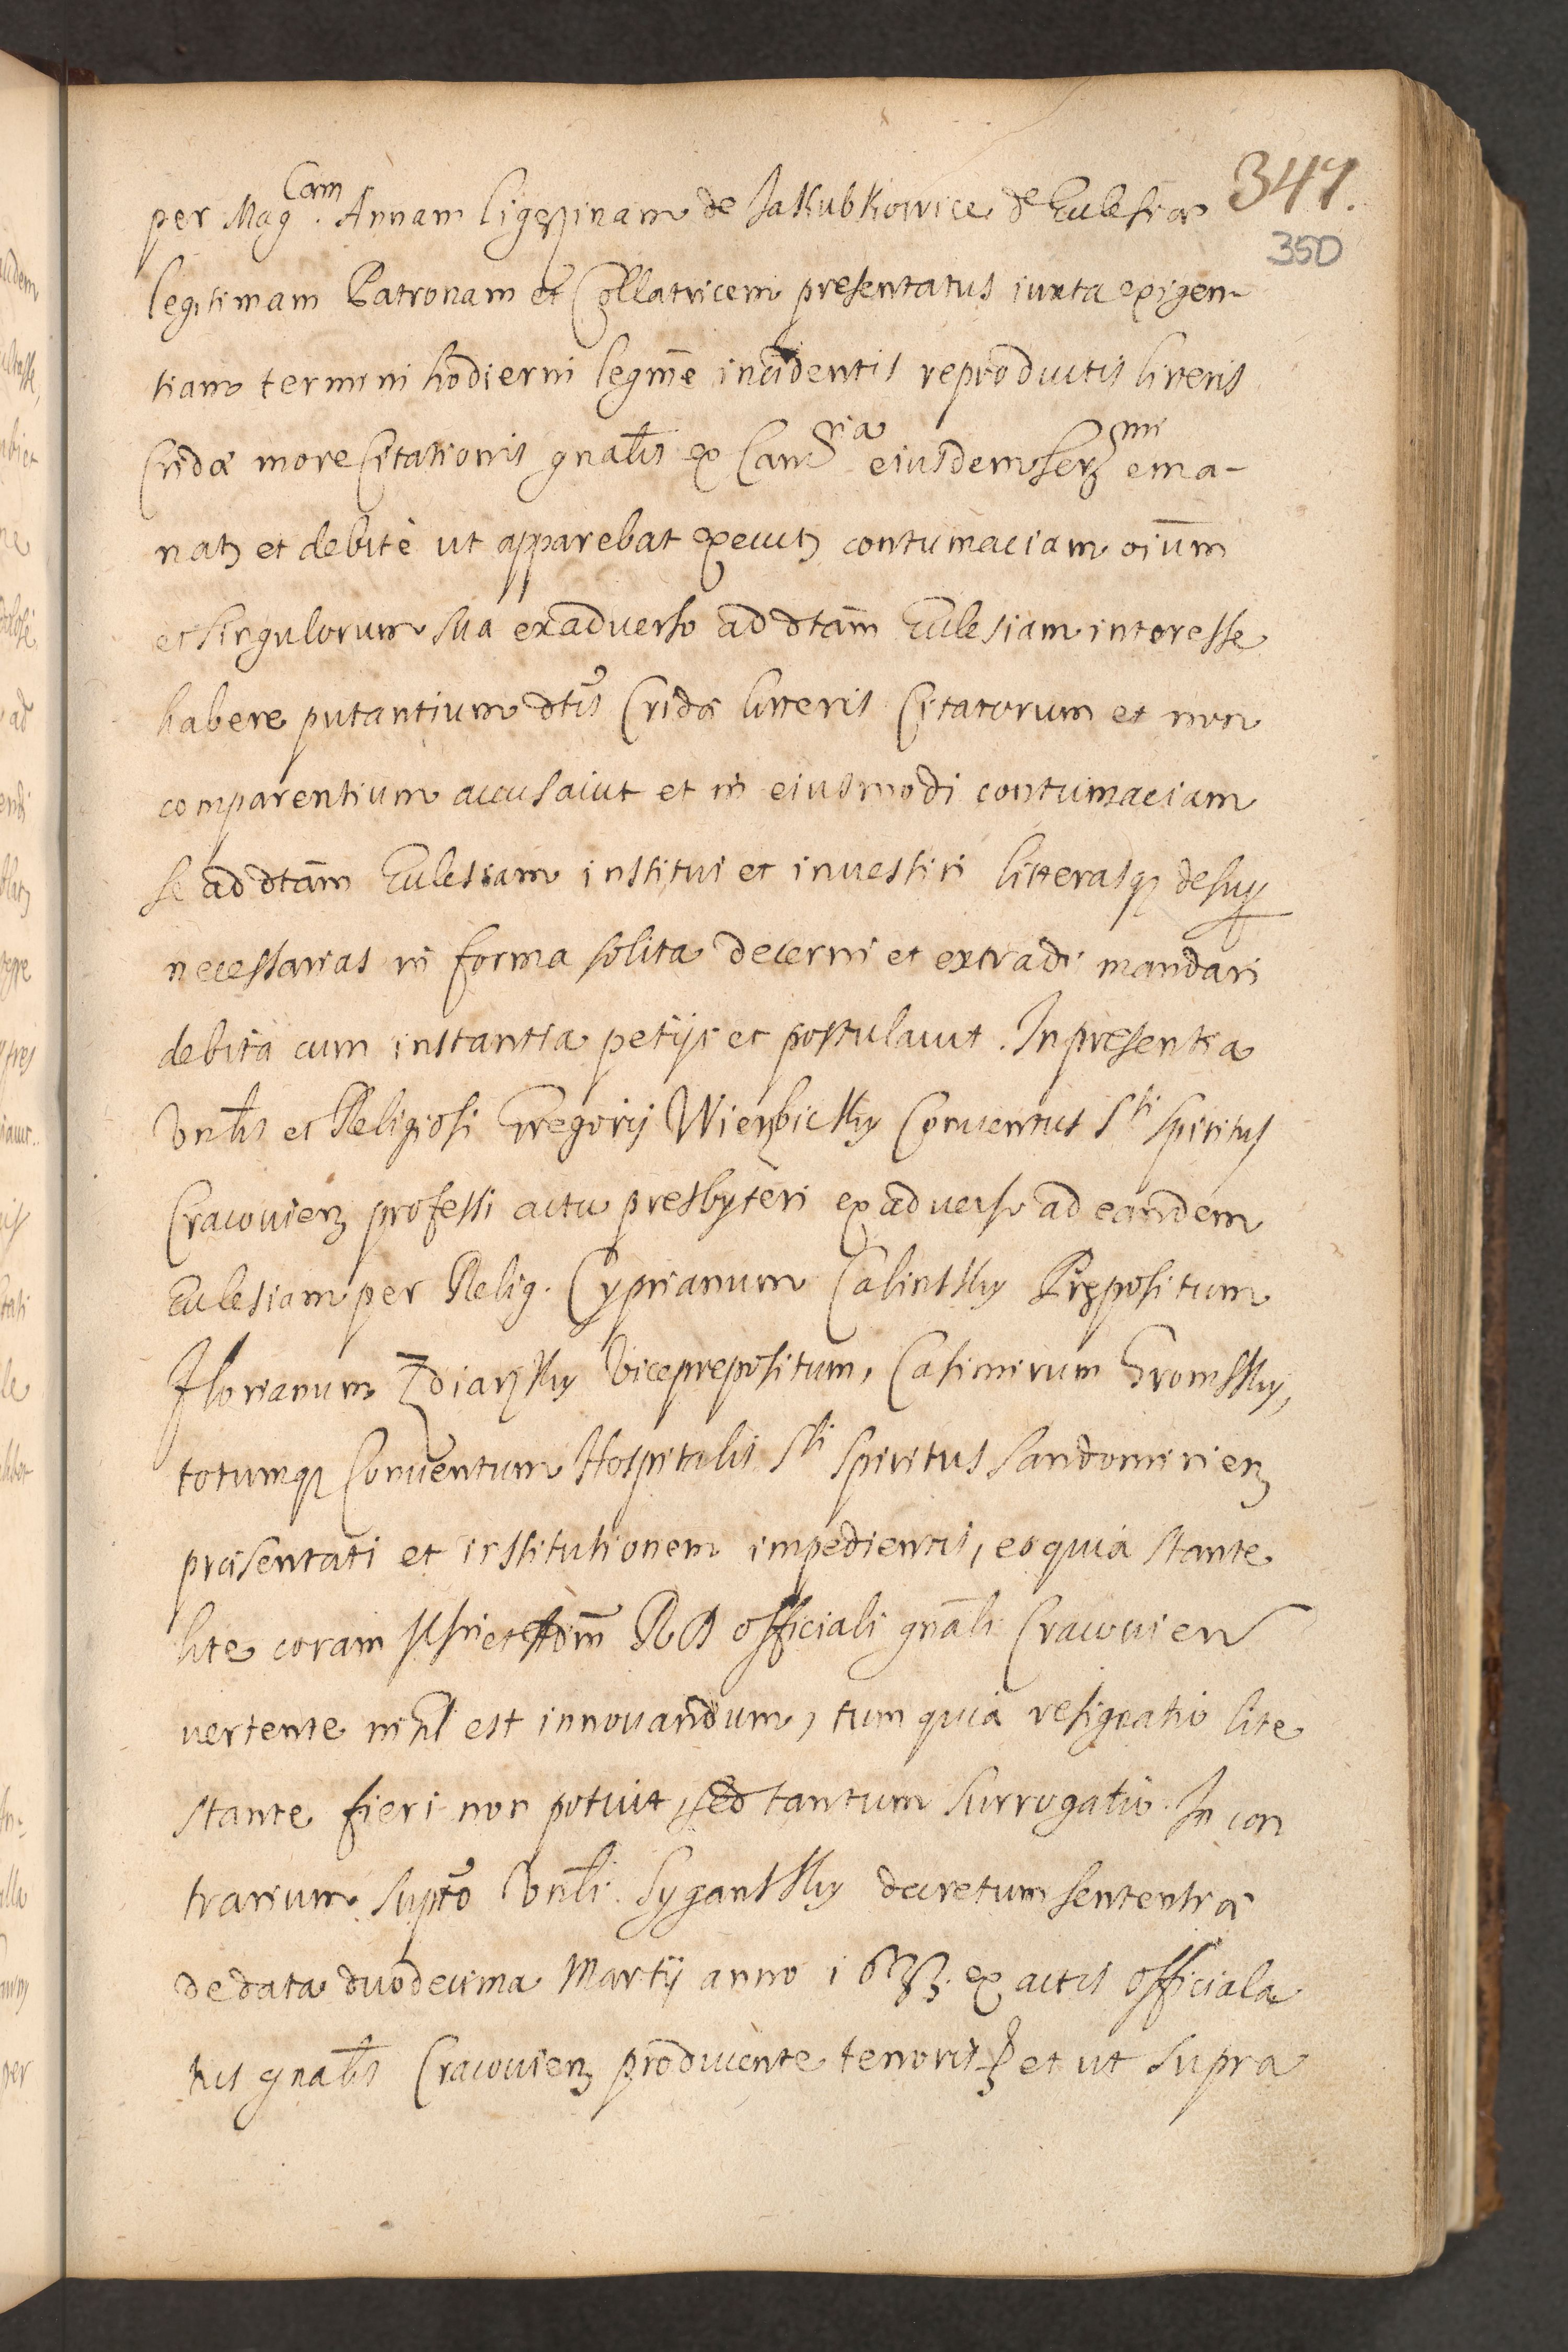 347.
350
per Mag Cam. Annam Ligęzinam de Jakubkowice de Ecclesiæ
legitimam Patronam et Collatricem presentatus iuxta exigen-
tiam termini hodierni legitime incidentis reproductis litteris
Cridæ more Citationis gnalis ex Canria eiusdem Serzmi ema-
natz et debitè ut apparebat executz contumaciam oium
et singulorum sua exaduerso ad dtam Ecclesiam interesse
habere putantium dtis Cridæ litteris Citatorum et non
comparentium accusauit et in eiusmodi contumaciam
se ad dtam Ecclesiam institui et inuestiri litterasq desup
necessarias in forma solita decerni et extradi mandari
debita cum instantia petijt et postulauit. In presentia
Vnlis et Religiosi Gregorij Wierzbicky Conuentus Sti Spiritus
Cracouien professi actu presbyteri exaduerso ad eandem
Ecclesiam per Relig. Cyprianum Calinsky Præpositum
Florianum Zdiarsky Viceprepositum, Casimirum Gromsky,
totumq Conuentum Hospitalis Sti Spiritus Sandomirien
præsentati et institutionem impedientis, eo quia stante
lite coram officiali gnali Cracouien
uertente nihil est innouandum, tum quia resignatio lite
stante fieri non potuit, sed tantum surrogatio. In con
trarium supto Vnli. Sygansky decretum sententiæ
de data duodecima Martij anno 1633. ex actis officiala
tus gnalis Cracouien producente tenoris et ut supra